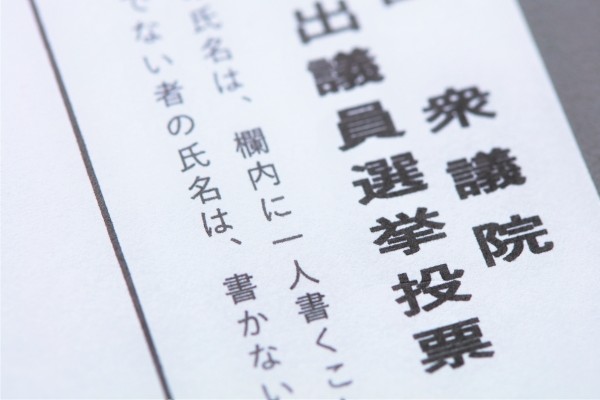 衆議院
出議員選挙投票
氏名は、欄内に一人書くこ
でない者の氏名は、書かない